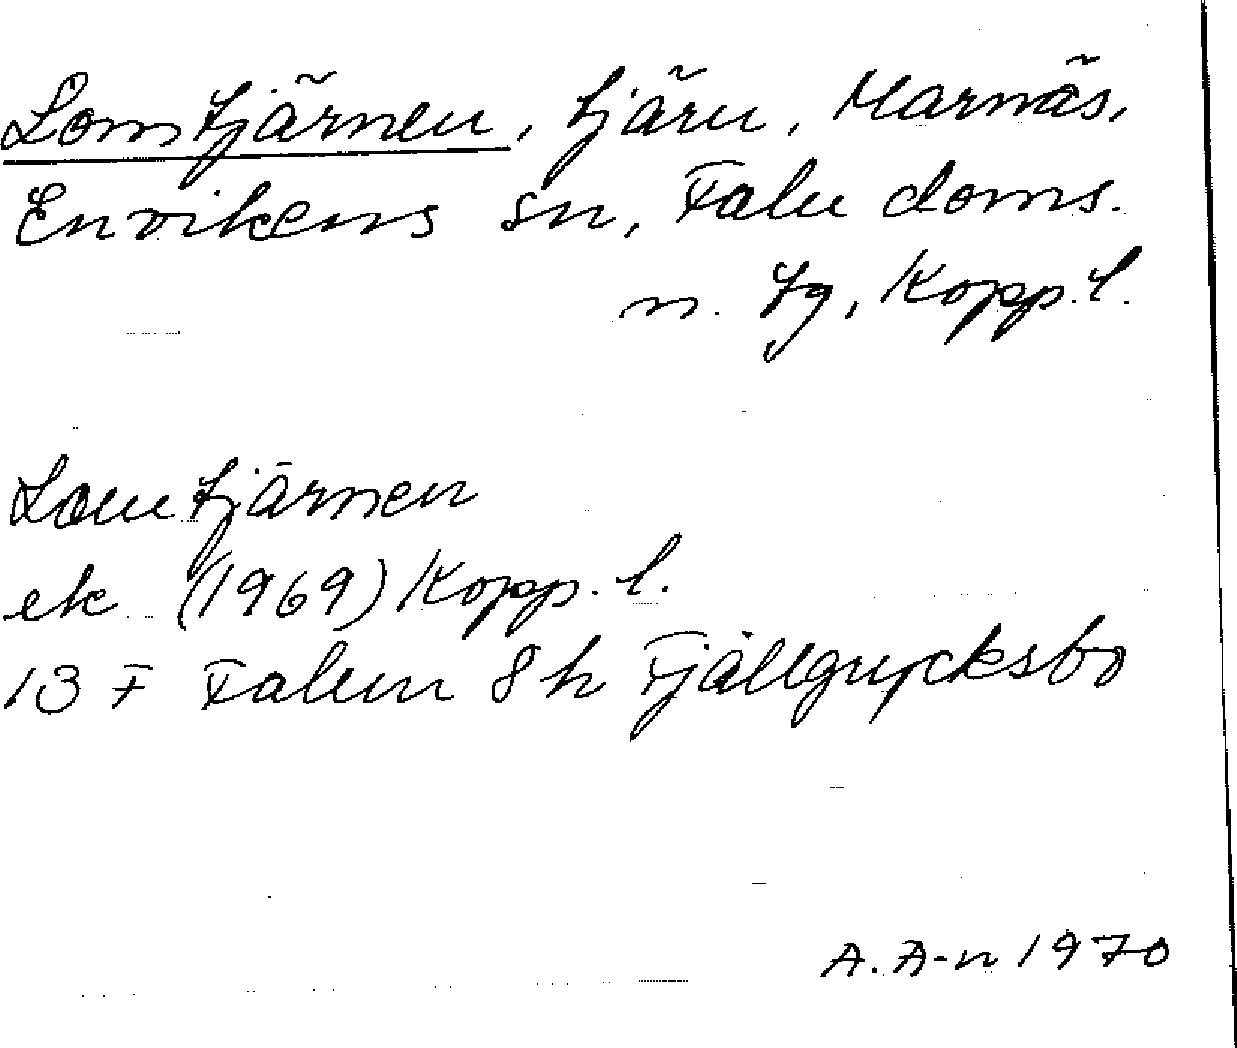 Lomtjärnen, tjärn, Marnäs,
Envikens sn, Falu doms.
n. tg, Kopp. l.
Lomtjärnen
ek (1969) Kopp. l.
13 F Falun 8 h Fjällgrycksbo
A. A-n 1970